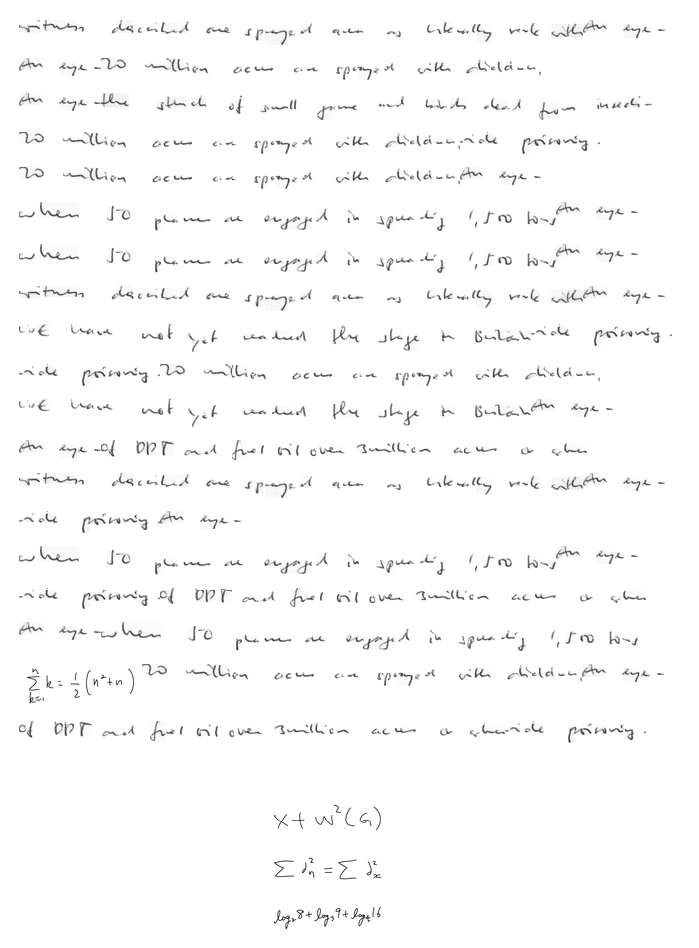 witness described one sprayed area as literally reek with An eye-
An eye-20 million acres are sprayed with dieldrin,
An eye-the stench of small game and birds dead from insecti-
20 million acres are sprayed with dieldrin,-cide poisoning.
20 million acres are sprayed with dieldrin,An eye-
when 50 planes are engaged in spreading 1,500 tons An eye-
when 50 planes are engaged in spreading 1,500 tons An eye-
witness described one sprayed area as literally reek with An eye-
WE have not yet reached the stage in Britain-cide poisoning.
-cide poisoning.20 million acres are sprayed with dieldrin,
WE have not yet reached the stage in Britain An eye-
An eye-of DDT and fuel oil over 3 million acres or when
witness described one sprayed area as literally reek with An eye-
-cide poisoning An eye-
when 50 planes are engaged in spreading 1,500 tons An eye-
-cide poisoning of DDT and fuel oil over 3 million acres or when
An eye-when 50 planes are engaged in spreading 1,500 tons
\sum_{k=1}^{n} k = \frac{1}{2}(n^2+n) 20 million acres are sprayed with dieldrin,An eye-
of DDT and fuel oil over 3 million acres or when-cide poisoning.
x + w^2(G)
\sum d_n^2 = \sum d_x^2
log_2 8 + log_3 9 + log_4 16